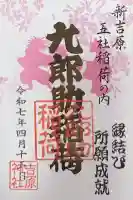 新吉原
五社稲荷の内
縁結び
所願成就
九郎助稲荷
令和七年四月十六日
吉原神社